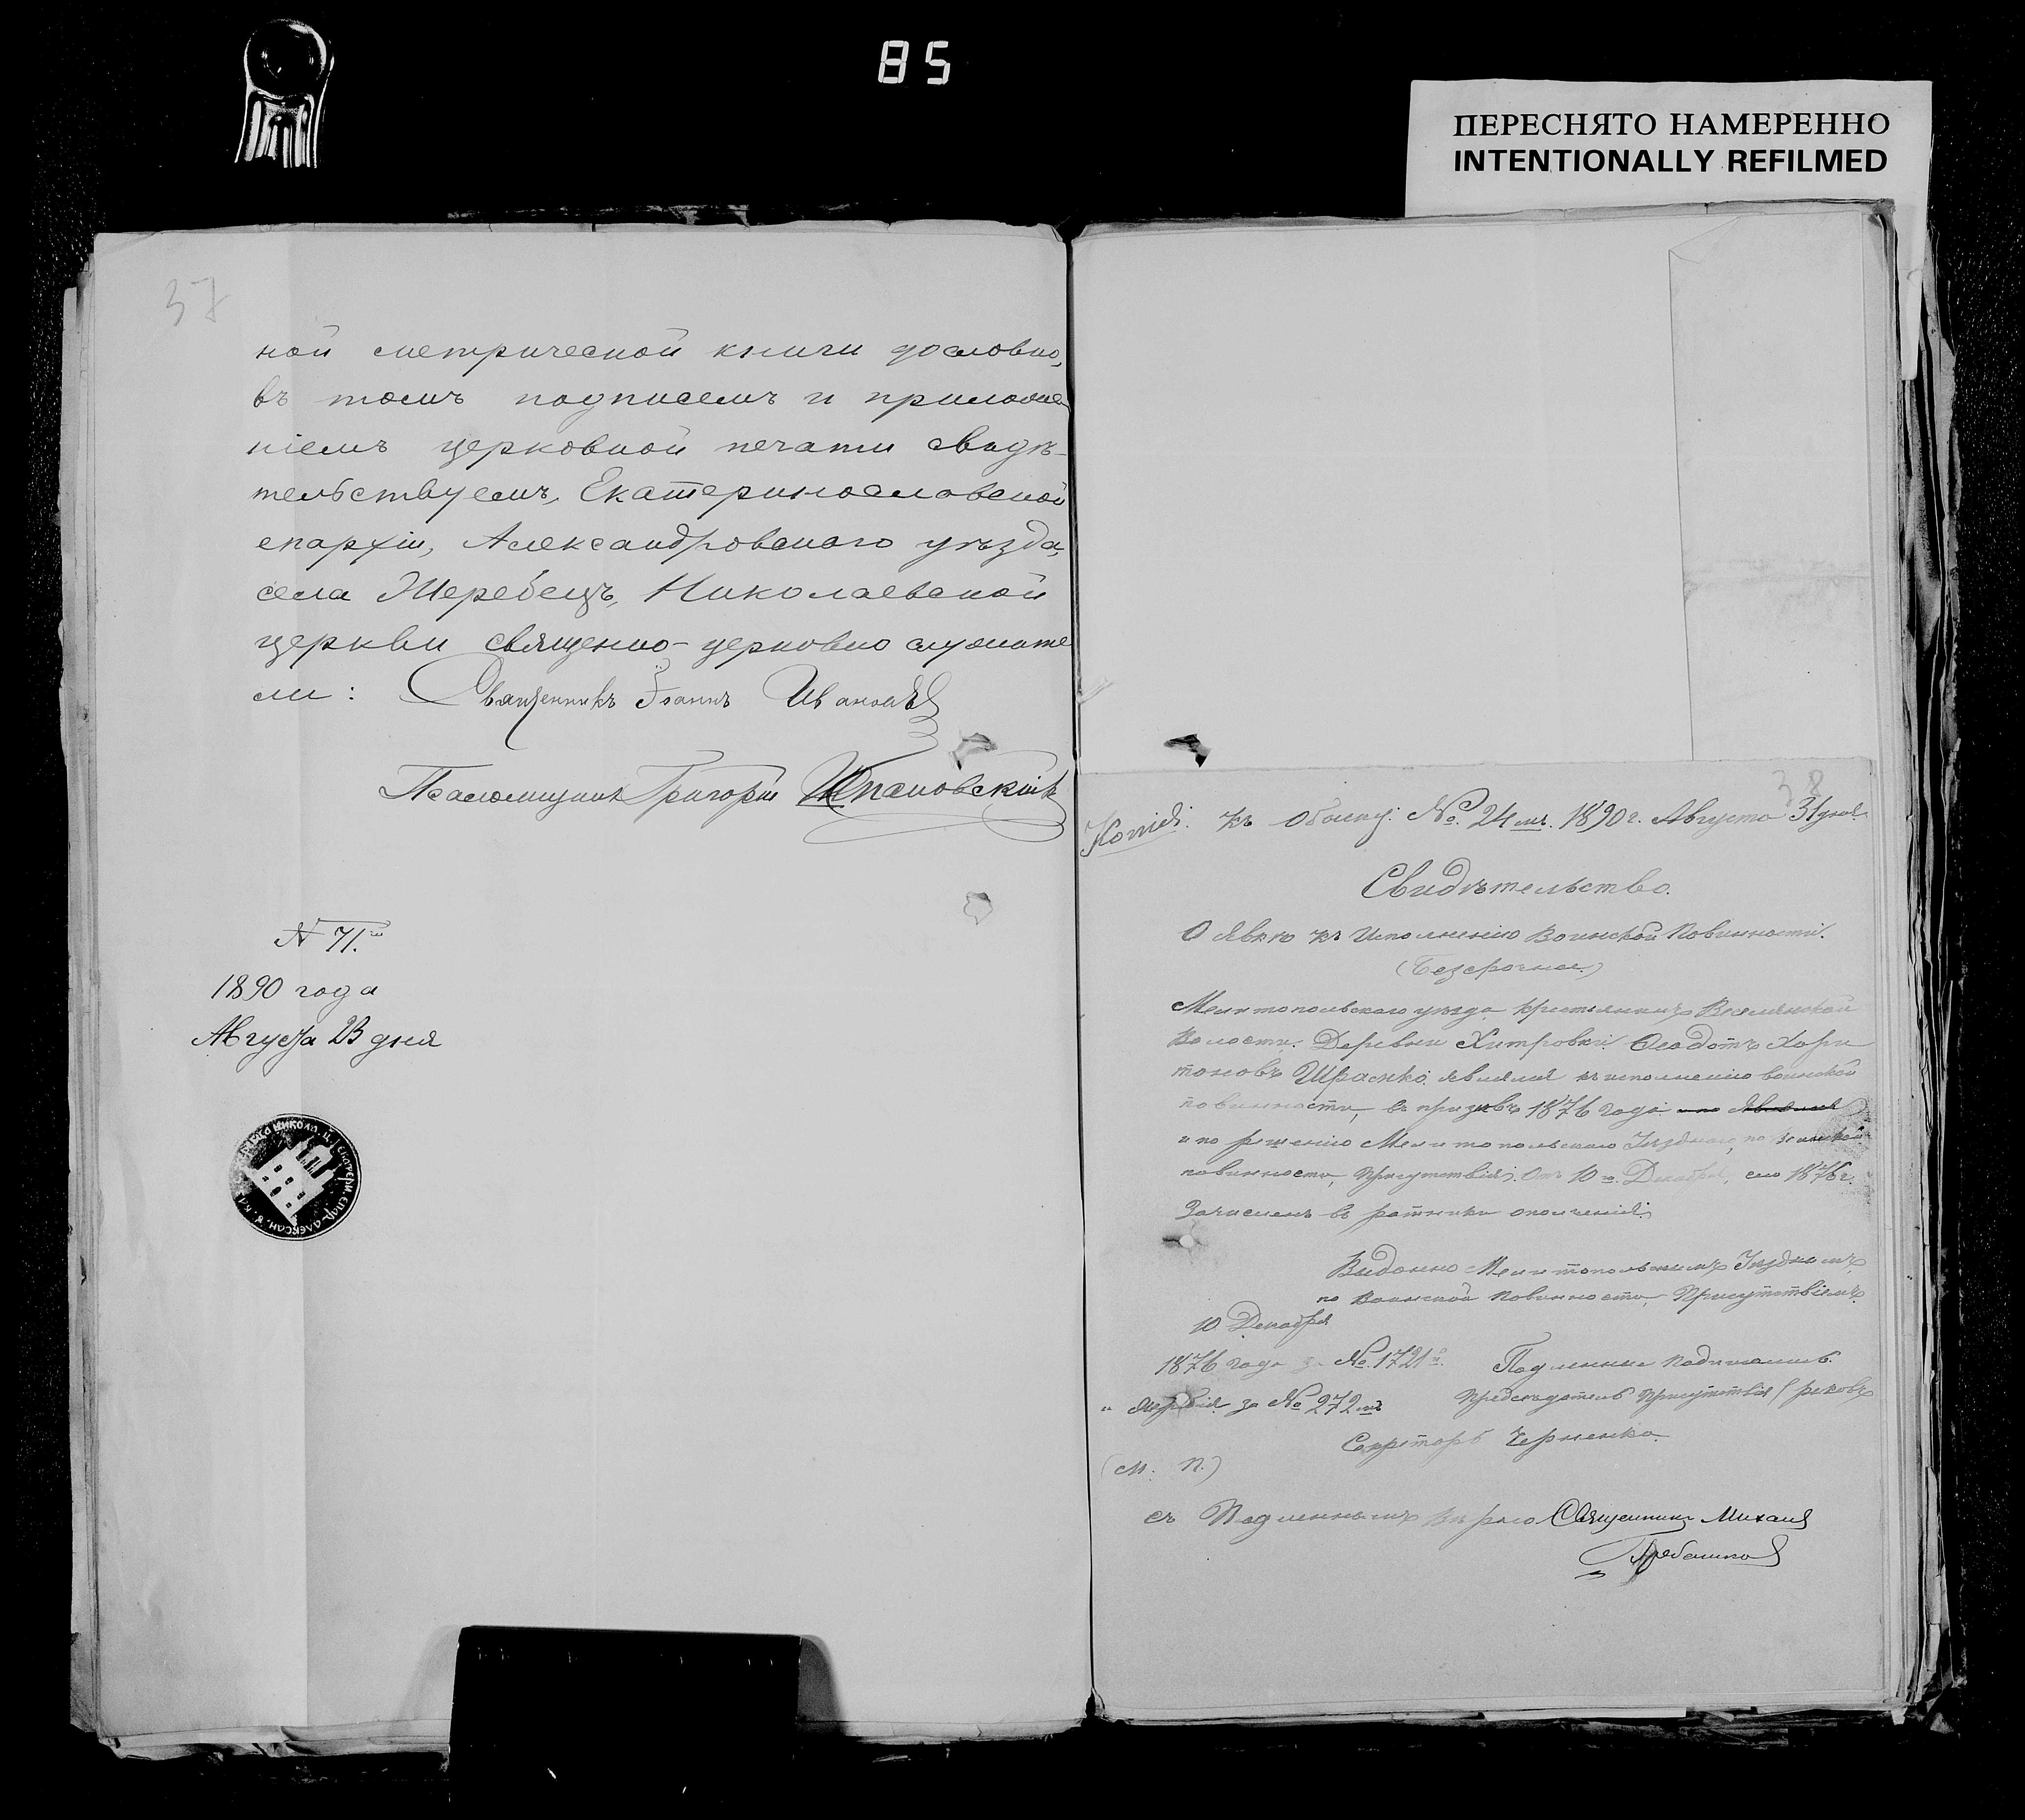 85
ПЕРЕСНЯТО НАМЕРЕННО
INTENTIONALLY REFILMED
37
ной метрической книги дословно,
въ томъ подписемъ и приложе
ніемъ церковной печати свидѣ-
тельствуемъ, Екатеринославской
епархіи, Александровскаго уѣзда,
села Жеребецъ, Николаевской
церкви священно-церковно служите
ли: Священникъ Іоаннъ Ивановъ
Псаломщикъ Григорій
N 71.
1890 года
Августа 23 дня
38
Копія. къ Обыску: №. 24 мъ. 1890 г. Августа 31 дня.
Свидѣтельство.
О Явкѣ къ Исполненію Воинской Повинности.
(Безсрочное)
Мелитопольскаго уѣзда крестьянинъ Веселянской
Волости. Деревни Хитровки Ѳеодотъ Хари
тоновъ являлся къ исполненію воинской
повинности, въ призывъ 1876 года
и по рѣшенію Мелитопольскаго Уѣзднаго, по Воинской
повинности, Присутствія. Отъ 10 го. Декабря, 1876 г.
Зачисленъ въ ратники ополченія.
Выданно Мелитопольскимъ Уѣзднымъ
по Воинской Повинности, Присутствіемъ
10 Декабря
1876 года за №. 1721 й. Подленные подписаніе.
за № 272 мъ Предсѣдатель Присутствія
Секретарь Черненко.
(М. П.)
съ Подленнымъ вѣрно Священникъ Михаилъ